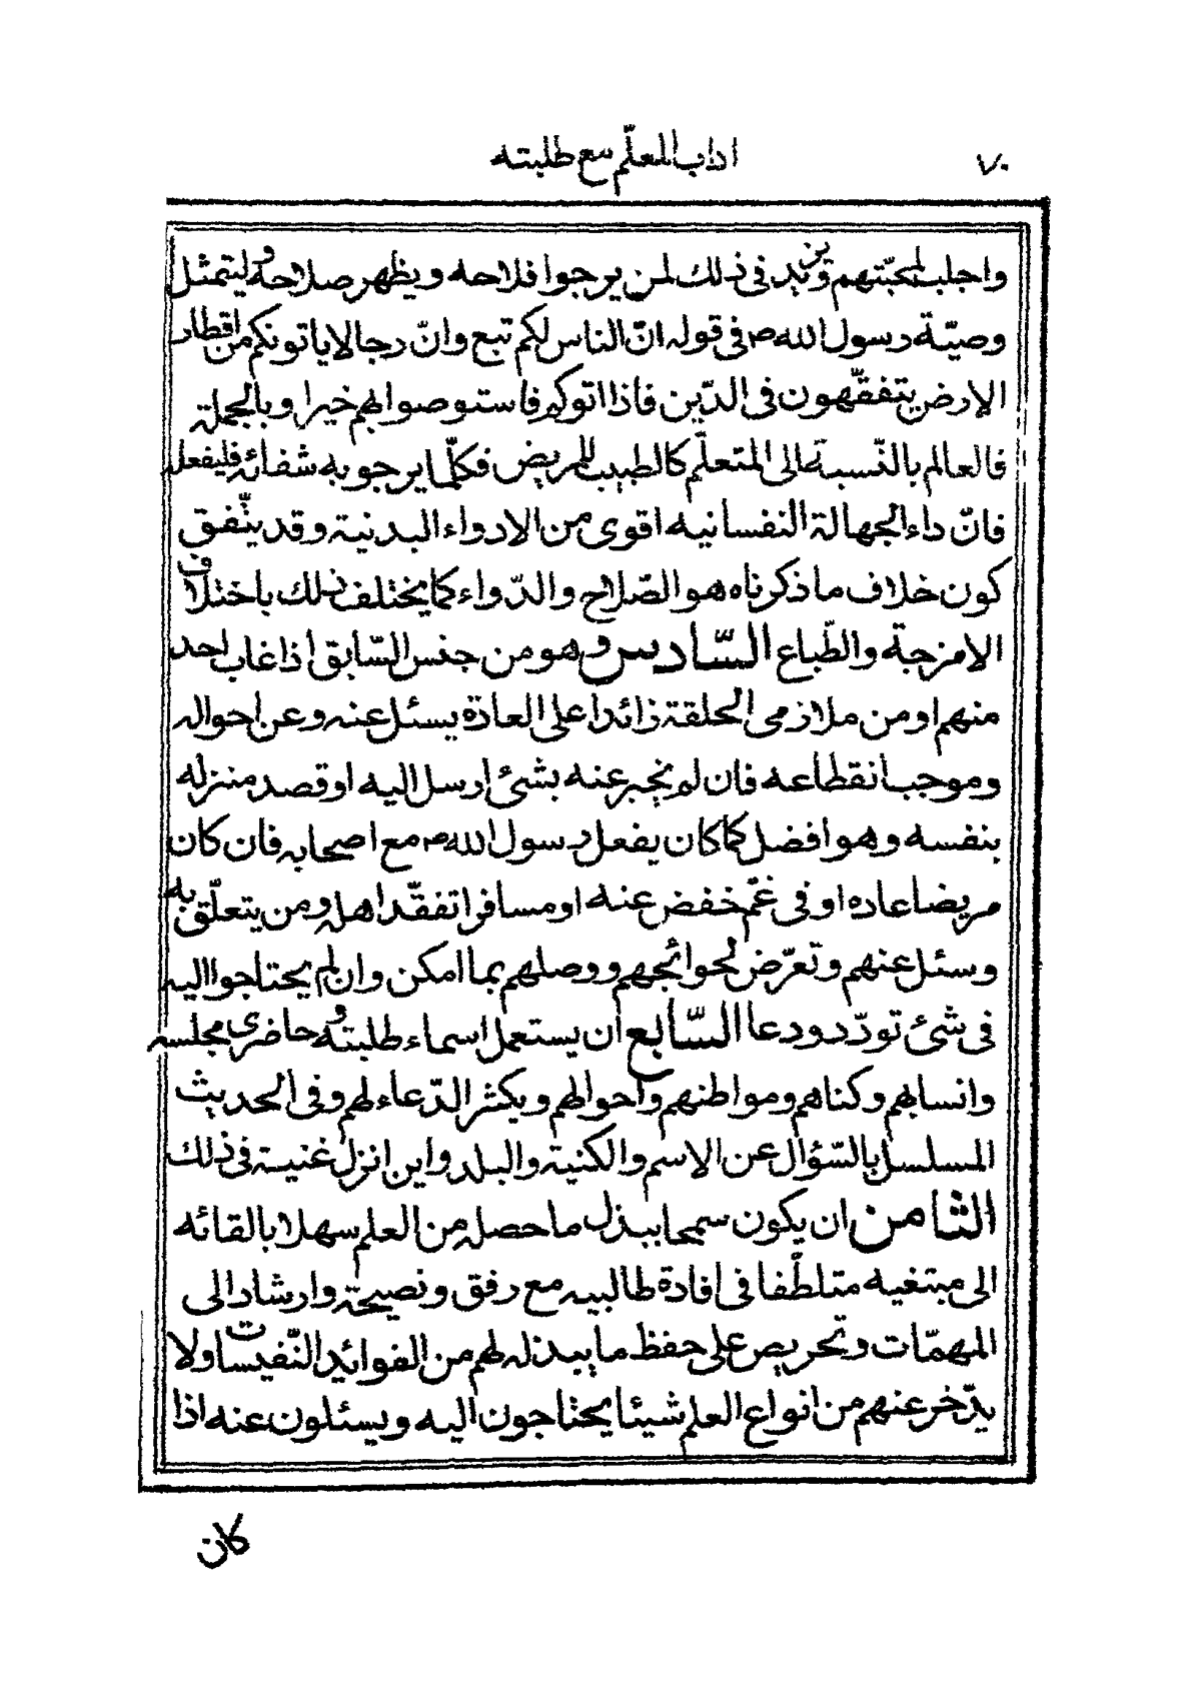 ٧٠
اداب المعلّم مع طلبته
واجلب لمحبّتهم ويزيد فى ذلك لمن يرجوا فلاحه ويظهر صلاحه وليتمثل
وصيّة رسول الله ص فى قوله انّ الناس لكم تبع وانّ رجالا ياتونكم من اقطار
الارض يتفقّهون فى الدّين فاذا اتوكم فاستوصوا بهم خيرا وبالجملة
فالعالم بالنّسبة الى المتعلّم كالطبيب للمريض فكلّما يرجو به شفائه فليفعله
فانّ داء الجهالة النفسانيه اقوى من الادواء البدنية وقد يتّفق
كون خلاف ما ذكرناه هو الصّلاح والدّواء كما يختلف ذلك باختلاف
الامزجة والطّباع السّادس وهو من جنس السّابق اذا غاب احد
منهم او من ملازمى الحلقة زائدا على العادة يسئل عنه وعن احواله
وموجب انقطاعه فان لم يخبر عنه بشئ ارسل اليه او قصد منزله
بنفسه وهو افضل كما كان يفعل رسول الله ص مع اصحابه فان كان
مريضا عاده او فى غمّ خفض عنه او مسافرا تفقّد اهله ومن يتعلّق به
وسئل عنهم وتعرّض لحوائجهم ووصلهم بما امكن وان لم يحتاجوا اليه
فى شئ تودّد ودعا السّابع ان يستعمل اسماء طلبته وحاضرى مجلسه
وانسابهم وكناهم ومواطنهم واحوالهم ويكثر الدّعاء لهم وفى الحديث
المسلسل بالسّؤال عن الاسم والكنية والبلد واين انزل غنية فى ذلك
الثامن ان يكون سمحا ببذل ما حصله من العلم سهلا بالقائه
الى مبتغيه متلطّفا فى افادة طالبيه مع رفق ونصيحة وارشاد الى
المهمّات وتحريص على حفظ ما يبذله لهم من الفوائد النّفيسات ولا
يدّخر عنهم من انواع العلم شيئا يحتاجون اليه ويسئلون عنه اذا
كان